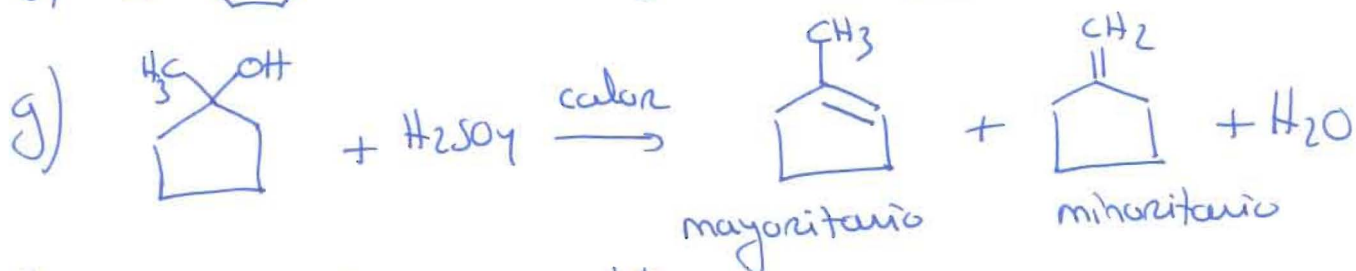 g) H3C OH + H2SO4 calor CH3 + CH2 + H2O
mayoritario minoritario